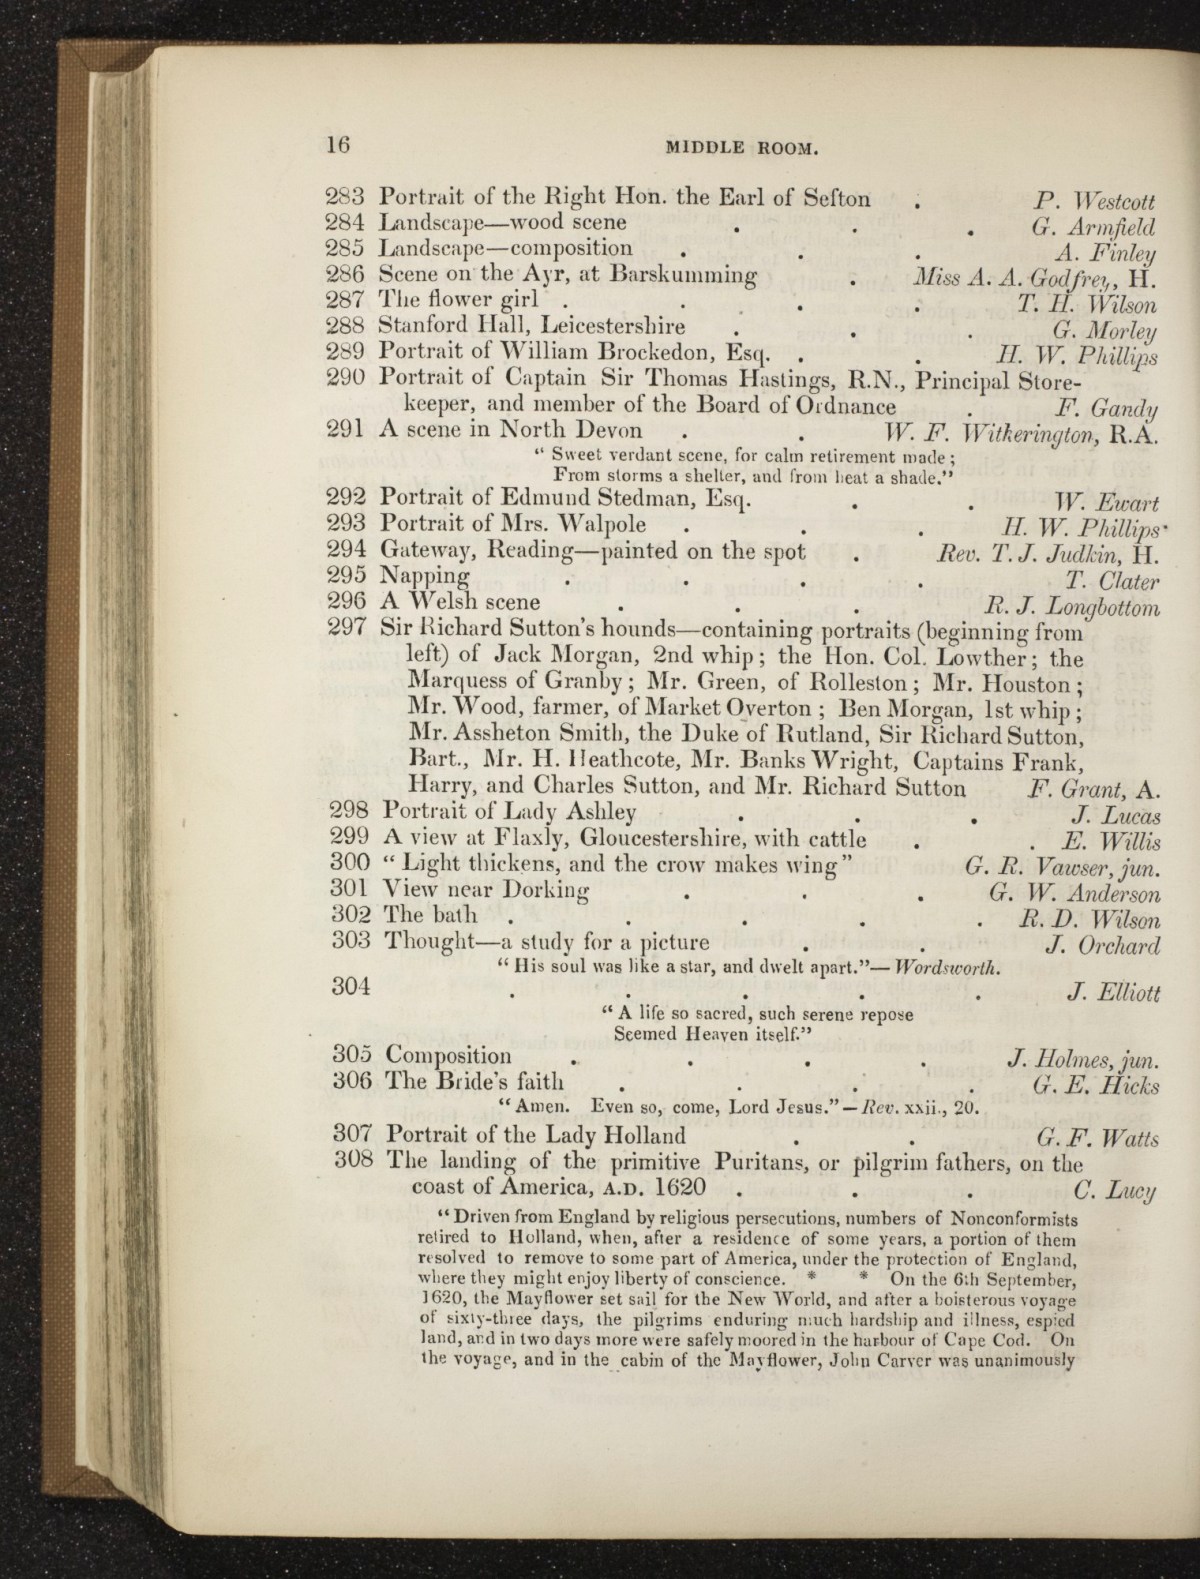 16 MIDDLE ROOM.
283 Portrait of the Right Hon. the Earl of Sefton . P. Westcott
284 Landscape—wood scene . . . G. Armfield
285 Landscape—composition . . . A. Finley
286 Scene on the Ayr, at Barskumming . Miss A. A. Godfrey, H.
287 The flower girl . . . . T. H. Wilson
288 Stanford Hall, Leicestershire . . . G. Morley
289 Portrait of William Brockedon, Esq. . . H. W. Phillips
290 Portrait of Captain Sir Thomas Hastings, R.N., Principal Store-
keeper, and member of the Board of Ordnance . F. Gandy
291 A scene in North Devon . . W. F. Witherington, R.A.
“ Sweet verdant scene, for calm retirement made ;
From storms a shelter, and from heat a shade.”
292 Portrait of Edmund Stedman, Esq. . . W. Ewart
293 Portrait of Mrs. Walpole . . . H. W. Phillips·
294 Gateway, Reading—painted on the spot . Rev. T. J. Judkin, H.
295 Napping . . . . T. Clater
296 A Welsh scene . . . R. J. Longbottom
297 Sir Richard Sutton’s hounds—containing portraits (beginning from
left) of Jack Morgan, 2nd whip ; the Hon. Col. Lowther ; the
Marquess of Granby ; Mr. Green, of Rolleston ; Mr. Houston ;
Mr. Wood, farmer, of Market Overton ; Ben Morgan, 1st whip ;
Mr. Assheton Smith, the Duke of Rutland, Sir Richard Sutton,
Bart., Mr. H. Heathcote, Mr. Banks Wright, Captains Frank,
Harry, and Charles Sutton, and Mr. Richard Sutton F. Grant, A.
298 Portrait of Lady Ashley . . . J. Lucas
299 A view at Flaxly, Gloucestershire, with cattle . . E. Willis
300 “ Light thickens, and the crow makes wing ” G. R. Vawser, jun.
301 View near Dorking . . . G. W. Anderson
302 The bath . . . . . R. D. Wilson
303 Thought—a study for a picture . . J. Orchard
“ His soul was like a star, and dwelt apart.”—Wordsworth.
304 . . . . . J. Elliott
“ A life so sacred, such serene repose
Seemed Heaven itself.”
305 Composition . . . . J. Holmes, jun.
306 The Bride’s faith . . . . G. E. Hicks
“ Amen. Even so, come, Lord Jesus.”—Rev. xxii., 20.
307 Portrait of the Lady Holland . . G. F. Watts
308 The landing of the primitive Puritans, or pilgrim fathers, on the
coast of America, A.D. 1620 . . . C. Lucy
“ Driven from England by religious persecutions, numbers of Nonconformists
retired to Holland, when, after a residence of some years, a portion of them
resolved to remove to some part of America, under the protection of England,
where they might enjoy liberty of conscience. * * On the 6th September,
1620, the Mayflower set sail for the New World, and after a boisterous voyage
of sixty-three days, the pilgrims enduring much hardship and illness, espied
land, and in two days more were safely moored in the harbour of Cape Cod. On
the voyage, and in the cabin of the Mayflower, John Carver was unanimously